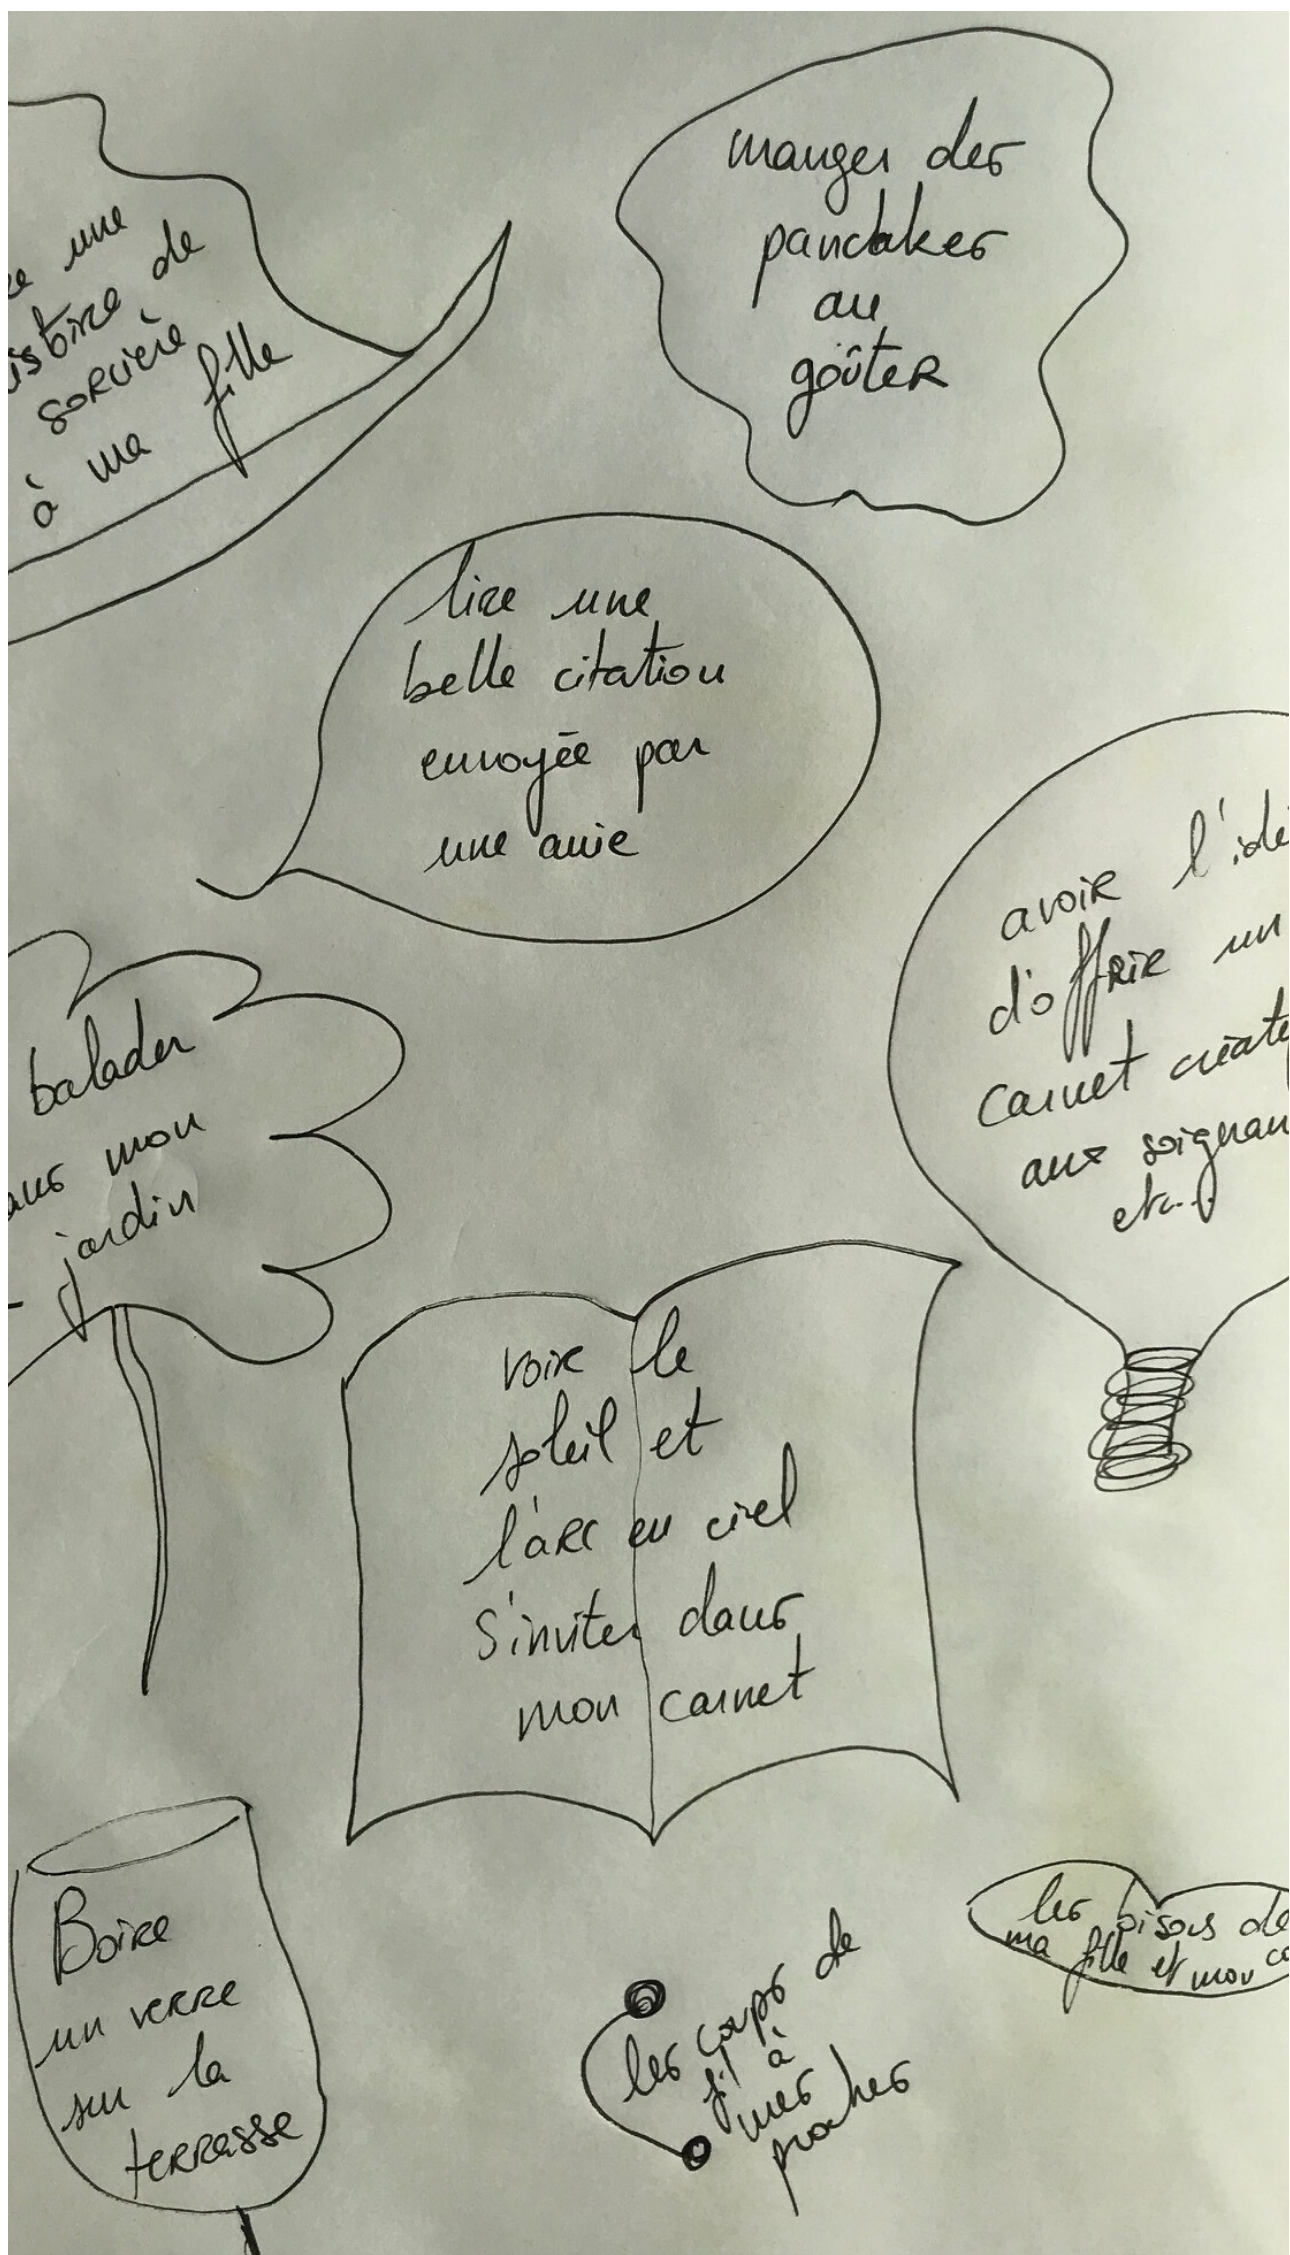 une
histoire de
sorcière
à ma fille
manger des
pancakes
au
goûter
lire une
belle citation
envoyée par
une amie
balader
mon
jardin
avoir l'idé
d'offrir un
carnet créat
aux soignan
etc...
voir le
soleil et
l'arc en ciel
s'inviter dans
mon carnet
Boire
un verre
sur la
terrasse
les coups de
fil à
mes
proches
les bisous de
ma fille et mon